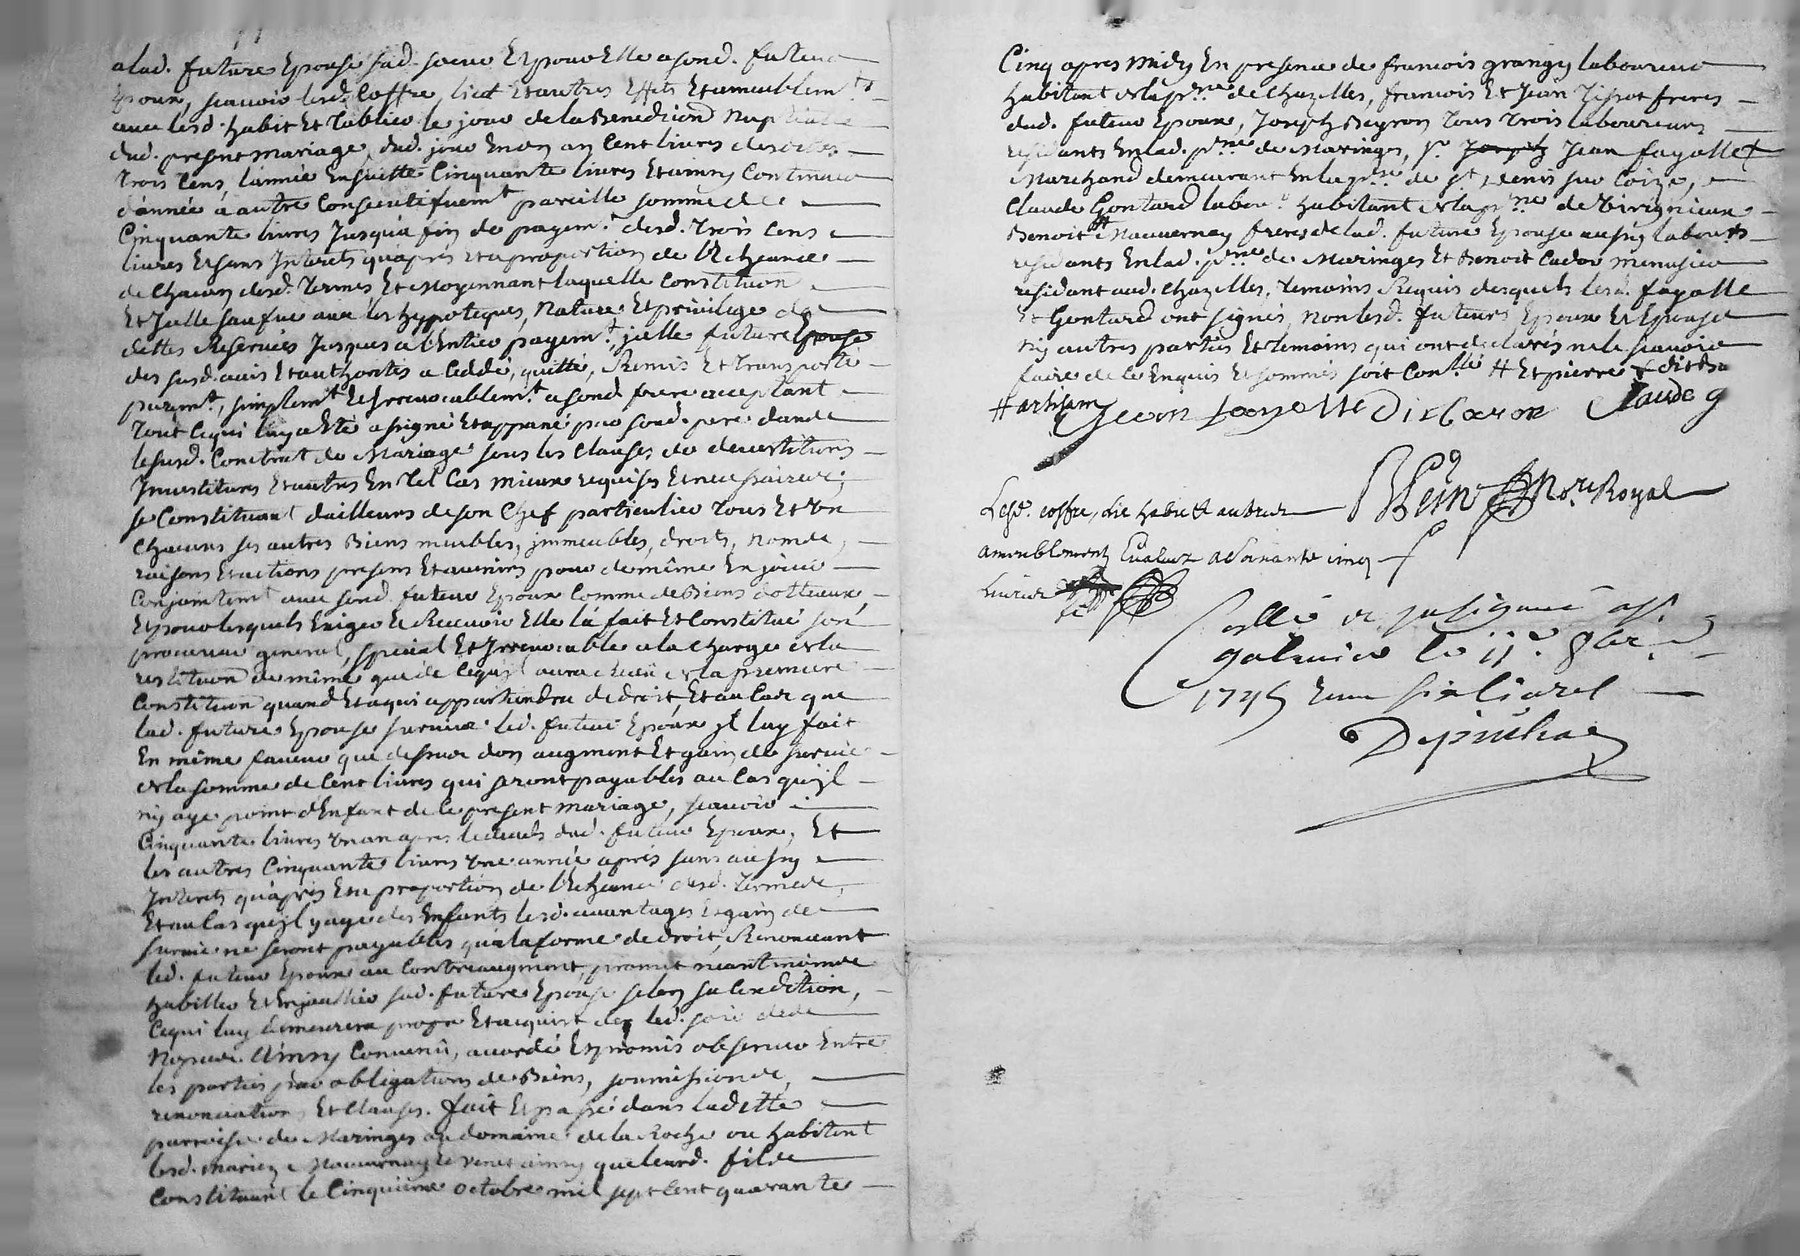 alad. future Epouse sad. soeur Et pour Elle a sond. futeur
Epoux, scauoir lesd. Coffre, lict Et autres Effets Et ameublemts
auec lesd. habit Et tablier le jour de la Benediction Nuptialle
dud. present mariage, dud. jour En un an Cent liures desdittes
trois Cens, l'année Ensuitte Cinquante liures Et ainsy Continuer
d'année à autre Consecutifuemt pareille somme de
Cinquante liures Jusqu'a fin de payemt desd. trois Cens
liures Et sans Interets qu'aprés Et a proportion de l'Echeance
de Chacun desd. termes Et moyennant laquelle Constitution
Et Icelle sauf ue aux les hypoteques, Nature Et priuilege de
dettes Reserués Jusques a l'Entier payemt, jcelle future Epouse
des susd. auis Et authorités a Ceddé, quitté, Remis Et transporté
puremt, simplemt Et Irreuocablemt a sond. frere acceptant
tout Ce qui luy a Eté assigné Et appané par sond. pere dans
le susd. Contrat de Mariage sous les Clauses de deuestitions
Inuestitures Et autres En tel Cas mieux requises Et necessaires;
se Constituant d'ailleurs de son Chef particulier tous Et un
Chacuns ses autres Biens meubles, jmmeubles, droits, noms,
raisons Et actions presens Et auenirs pour de même En jouir
Conjointemt auec sond. futeur Epoux Comme de Biens dotteaux,
Et pour lesquels Exiger Et Receuoir Elle l'a fait Et Constitué son
procureur general, special Et Irreuocable a la Charge de la
restitution de même que de Ce qu'il aura receu de la premiere
Constitution quand Et a qui appartiendra de droit, Et au Cas que
lad. future Epouse suruiue led. futeur Epoux jl luy fait
En même faueur que dessus don augment Et gain de suruie
de la somme de Cent liures qui seront payables au Cas qu'jl
n'y aye point d'Enfant de Ce present mariage, scauoir
Cinquante liures un an apres le deceds dud. futeur Epoux, Et
les autres Cinquante liures une année aprés sans aussy
Interets qu'aprés Et a proportion de l'Echeance desd. termes,
Et au Cas qu'jl y aye des Enfants lesd. auantages Et gain de
suruie ne seront payables qu'a la forme de droit, Renonceant
led. futeur Epoux au Contreaugment, promet neantmoins
habiller Et Enjoailler sad. future Epouse selon sa Condition,
Ce qui luy demeurera propre Et acquis des led. jour de
Nopces. Ainsy Conuenû, accordé Et promis obseruer Entre
les parties par obligations de Biens, soumissions,
renonciations Et Clauses. fait Et passé dans laditte
parroisse de Maringes au domaine de la Roche ou habitent
lesd. mariez Mauuernay Et Venet ainsy que leurd. fils
Constituant le Cinquieme octobre mil sept Cent quarante
Cinq apres midy En presence de francois grangy laboureur
habitant de la psse de Chazelles, francois Et Jean Tissot freres
dud. futeur Epoux, Joseph Beyron tous trois laboureurs
residants En lad. psse de Maringes, sr Jean fayolle +
Marchand demeurant En la psse de St Denis sur Coize,
Claude Gontard labour. habitant de la psse de Virignieux
Benoit # Mauuernay freres de lad. future Epouse aussy labours
residants En lad. psse de Maringes Et Benoit Cador menusier
residant aud. Chazelles, temoins Requis desquels lesd. fayolle
Et Gontard ont signés, non lesd. futeurs Epoux Et Epouse
ny autres parties Et temoins qui ont declarés ne le scauoir
faire de Ce Enquis Et sommés soit Contllé # Et pierre + dit
# artisan
Jean fayolle Claude g
Lesd. coffre, lit habit Et autres
Blein Nore Royal
ameublements Eualuez a soixante cinq
liures
Collé et insinué a St
galmier le 11e 8bre
1745 Reçu six liures